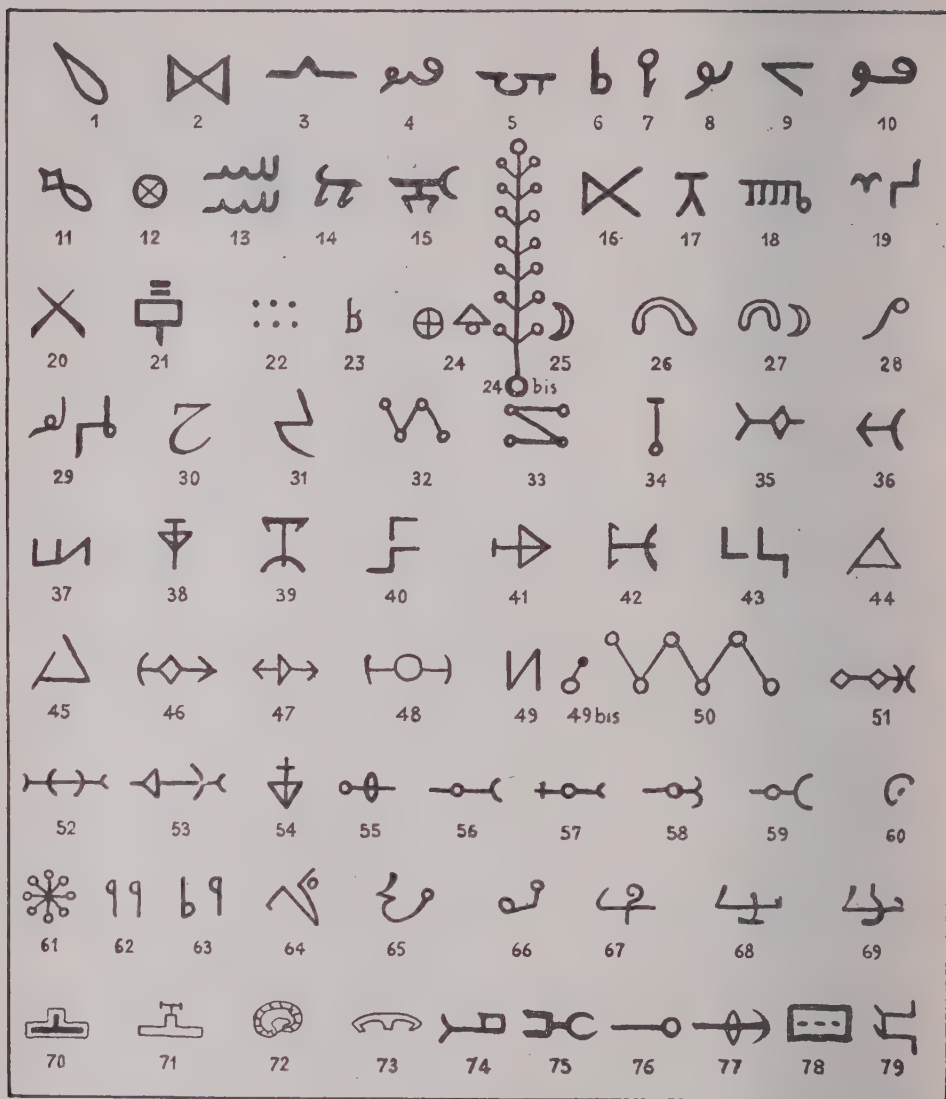 1 2 3 4 5 6 7 8 9 10
11 12 13 14 15 16 17 18 19
20 21 22 23 24 25 26 27 28
24 bis
29 30 31 32 33 34 35 36
37 38 39 40 41 42 43 44
45 46 47 48 49 49 bis 50 51
52 53 54 55 56 57 58 59 60
61 62 63 64 65 66 67 68 69
70 71 72 73 74 75 76 77 78 79